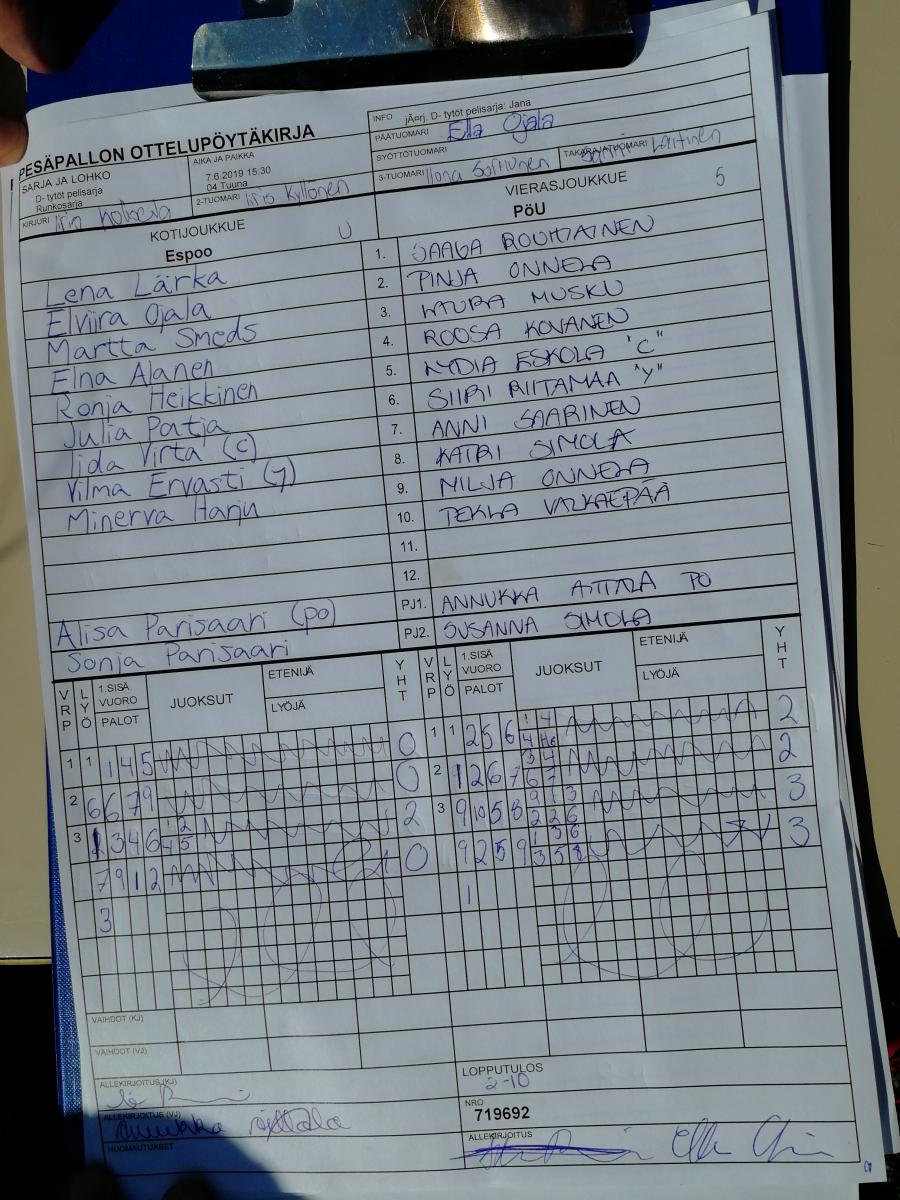 PESÄPALLON OTTELUPÖYTÄKIRJA
INFO jÃ¤rj. D- tytöt pelisarja: Jana
PÄÄTUOMARI Ella Ojala
SARJA JA LOHKO
D- tytöt pelisarja
Runkosarja
AIKA JA PAIKKA
7.6.2019 15:30
04 Tuuna
SYÖTTÖTUOMARI
TAKARAJATUOMARI Laitinen
KIRJURI
2-TUOMARI Kyllönen
3-TUOMARI Ilona
KOTIJOUKKUE U
Espoo
VIERASJOUKKUE 5
PöU
Lena Lärka
Elviira Ojala
Martta Smeds
Elna Alanen
Ronja Heikkinen
Julia Patja
Iida Virta (c)
Vilma Ervasti (J)
Minerva Harju
1. ROUHIAINEN
2. PINJA ONNELA
3. MUSKU
4. ROOSA KOVANEN
5. ESKOLA "C"
6. SIIRI RIITAMAA "Y"
7. ANNI SAARINEN
8. KATRI SIMOLA
9. MILJA ONNELA
10. TEKLA VALKAEPÄÄ
11.
12.
Alisa Parisaari (po)
Sonja Parisaari
PJ1. ANNUKKA AITTALA PO
PJ2. SUSANNA SIMOLA
VRP LYÖ 1.SISÄ VUORO PALOT JUOKSUT ETENIJÄ LYÖJÄ YHT
VRP LYÖ 1.SISÄ VUORO PALOT JUOKSUT ETENIJÄ LYÖJÄ YHT
1 1 1 4 5 0
1 1 2 5 6 2
2 6 6 7 9 0
2 1 2 6 7 2
3 1 3 4 6 2
3 9 10 5 8 3
7 9 1 2 0
9 2 5 9 3
3
1
VAIHDOT (KJ)
VAIHDOT (VJ)
ALLEKIRJOITUS (KJ)
ALLEKIRJOITUS (VJ) Annukka Aittala
HUOMAUTUKSET
LOPPUTULOS
2-10
NRO
719692
ALLEKIRJOITUS